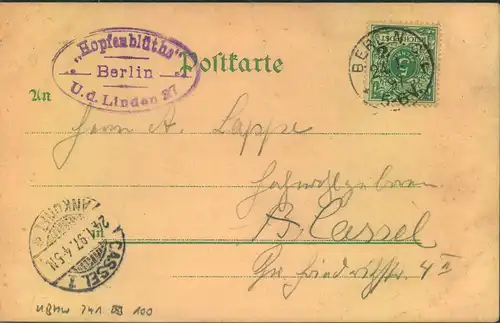 "Hopfenblüthe"
Berlin
U. d. Linden 27
Postkarte
An
Herrn A. Lappe
Hochwohlgeboren
Cassel
Friedrichstr. 4 II
BERLIN
24.1.97. 4-5N
CASSEL 1
100